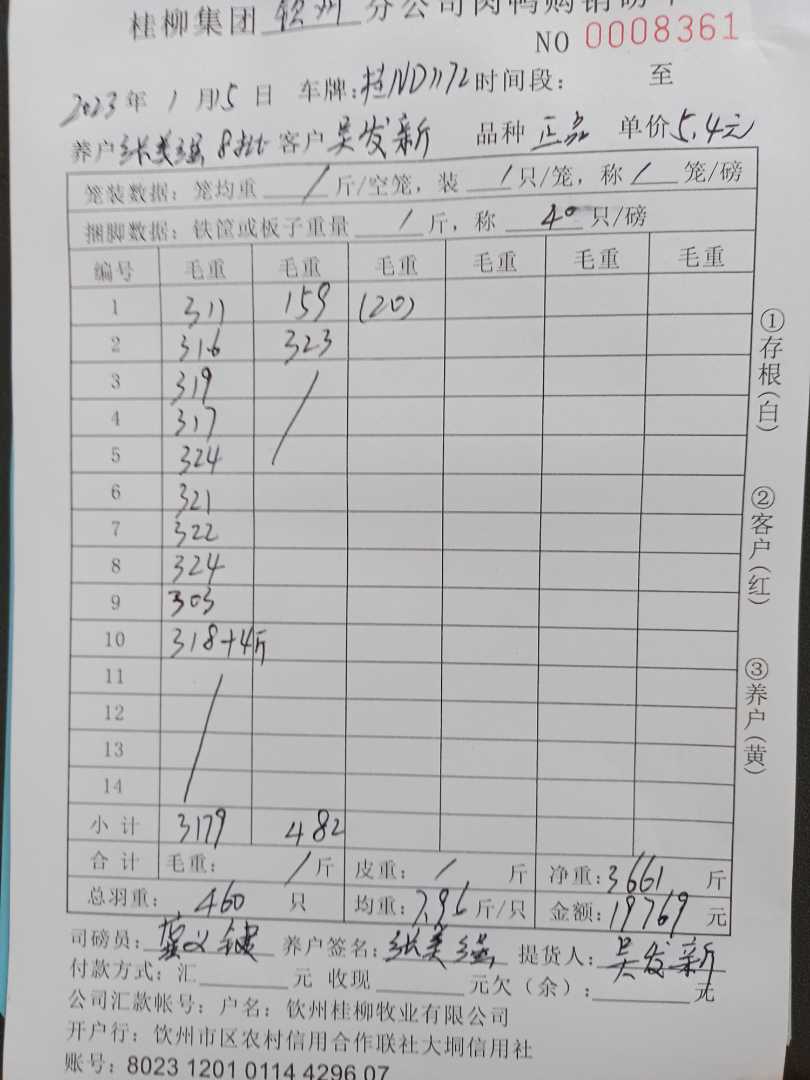 桂柳集团 钦州 分公司肉鸭购销磅单
NO 0008361
2023 年 1 月 15 日 车牌:桂ND1172 时间段: 至
养户 张美强 8批 客户 吴发新 品种 正品 单价 5.4元
笼装数据: 笼均重 / 斤/空笼, 装 / 只/笼, 称 / 笼/磅
捆脚数据: 铁筐或板子重量 / 斤, 称 40 只/磅
编号 毛重 毛重 毛重 毛重 毛重 毛重
1 311 159 (20)
2 316 323
3 319 /
4 317
5 324
6 321
7 322
8 324
9 303
10 318+4斤
11 /
12
13
14
小计 3179 482
合计 毛重: / 斤 皮重: / 斤 净重: 3661 斤
总羽重: 460 只 均重: 7.96 斤/只 金额: 19769 元
司磅员: 养户签名: 张美强 提货人: 吴发新
付款方式: 汇 元 收现 元欠(余): 元
公司汇款帐号: 户名: 钦州桂柳牧业有限公司
开户行: 钦州市区农村信用合作联社大垌信用社
账号: 8023 1201 0114 4296 07
①存根(白)
②客户(红)
③养户(黄)